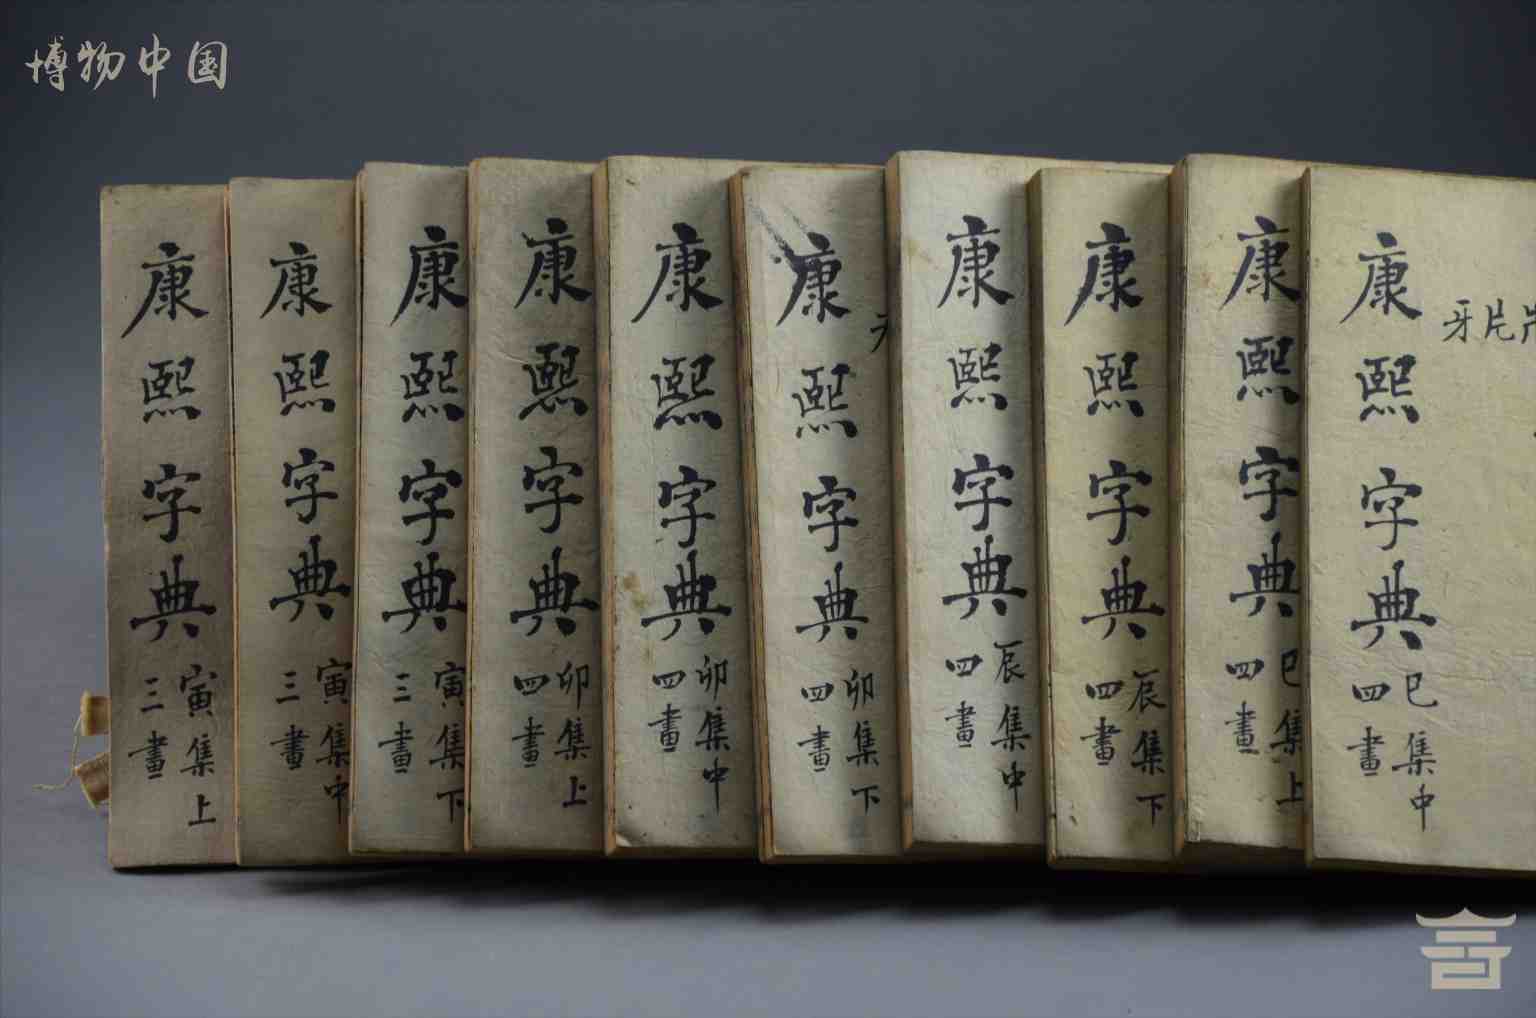 博物中国
康熙字典
寅集上
三畫
康熙字典
寅集中
三畫
康熙字典
寅集下
三畫
康熙字典
卯集上
四畫
康熙字典
卯集中
四畫
康熙字典
卯集下
四畫
康熙字典
辰集中
四畫
康熙字典
辰集下
四畫
康熙字典
巳集上
四畫
牙片
康熙字典
巳集中
四畫